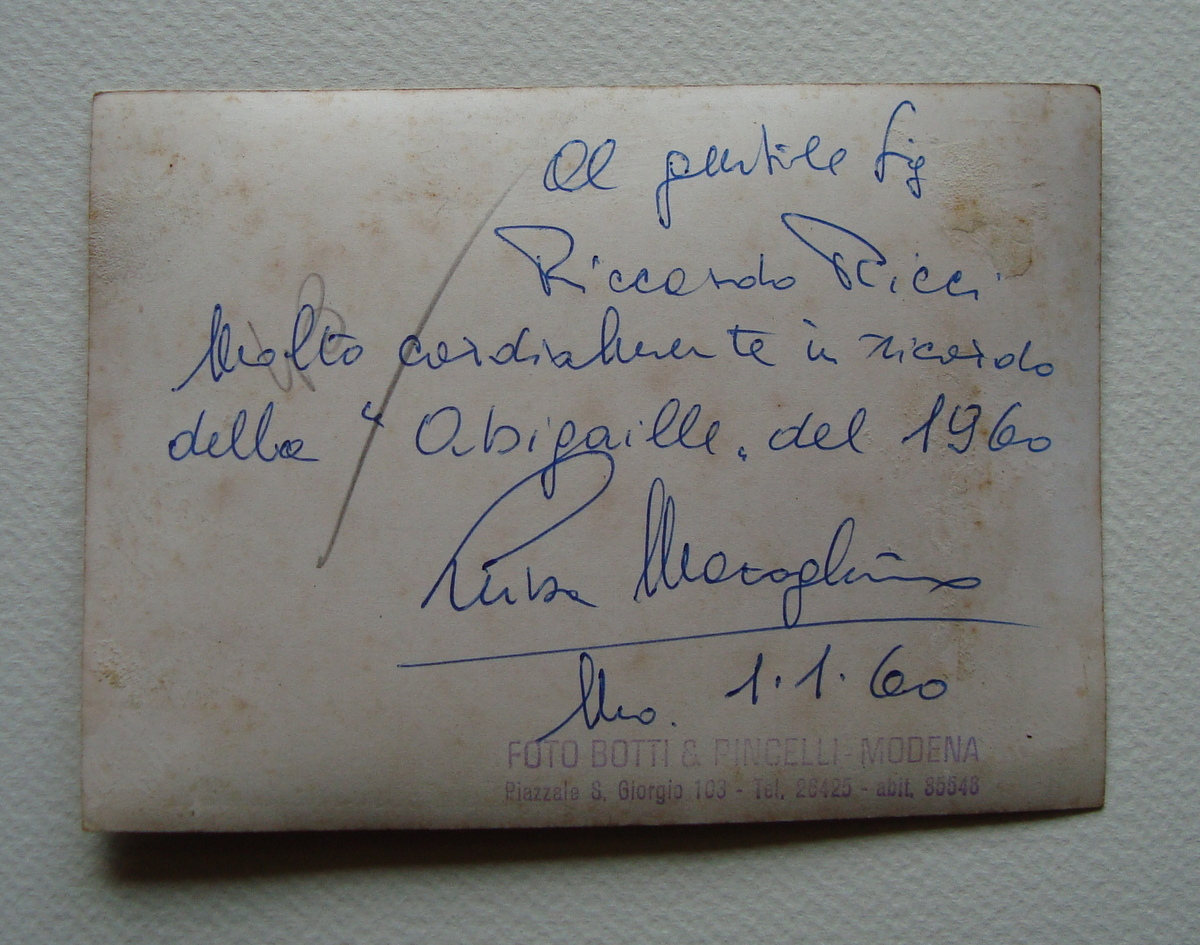 Al gentile Sig
Riccardo Ricci
Molto cordialmente in ricordo
della "Abigaille" del 1960
Luisa Maragliano
Mo. 1.1.60
FOTO BOTTI & PINCELLI - MODENA
Piazzale S. Giorgio 103 - Tel. 26425 - abit. 35648